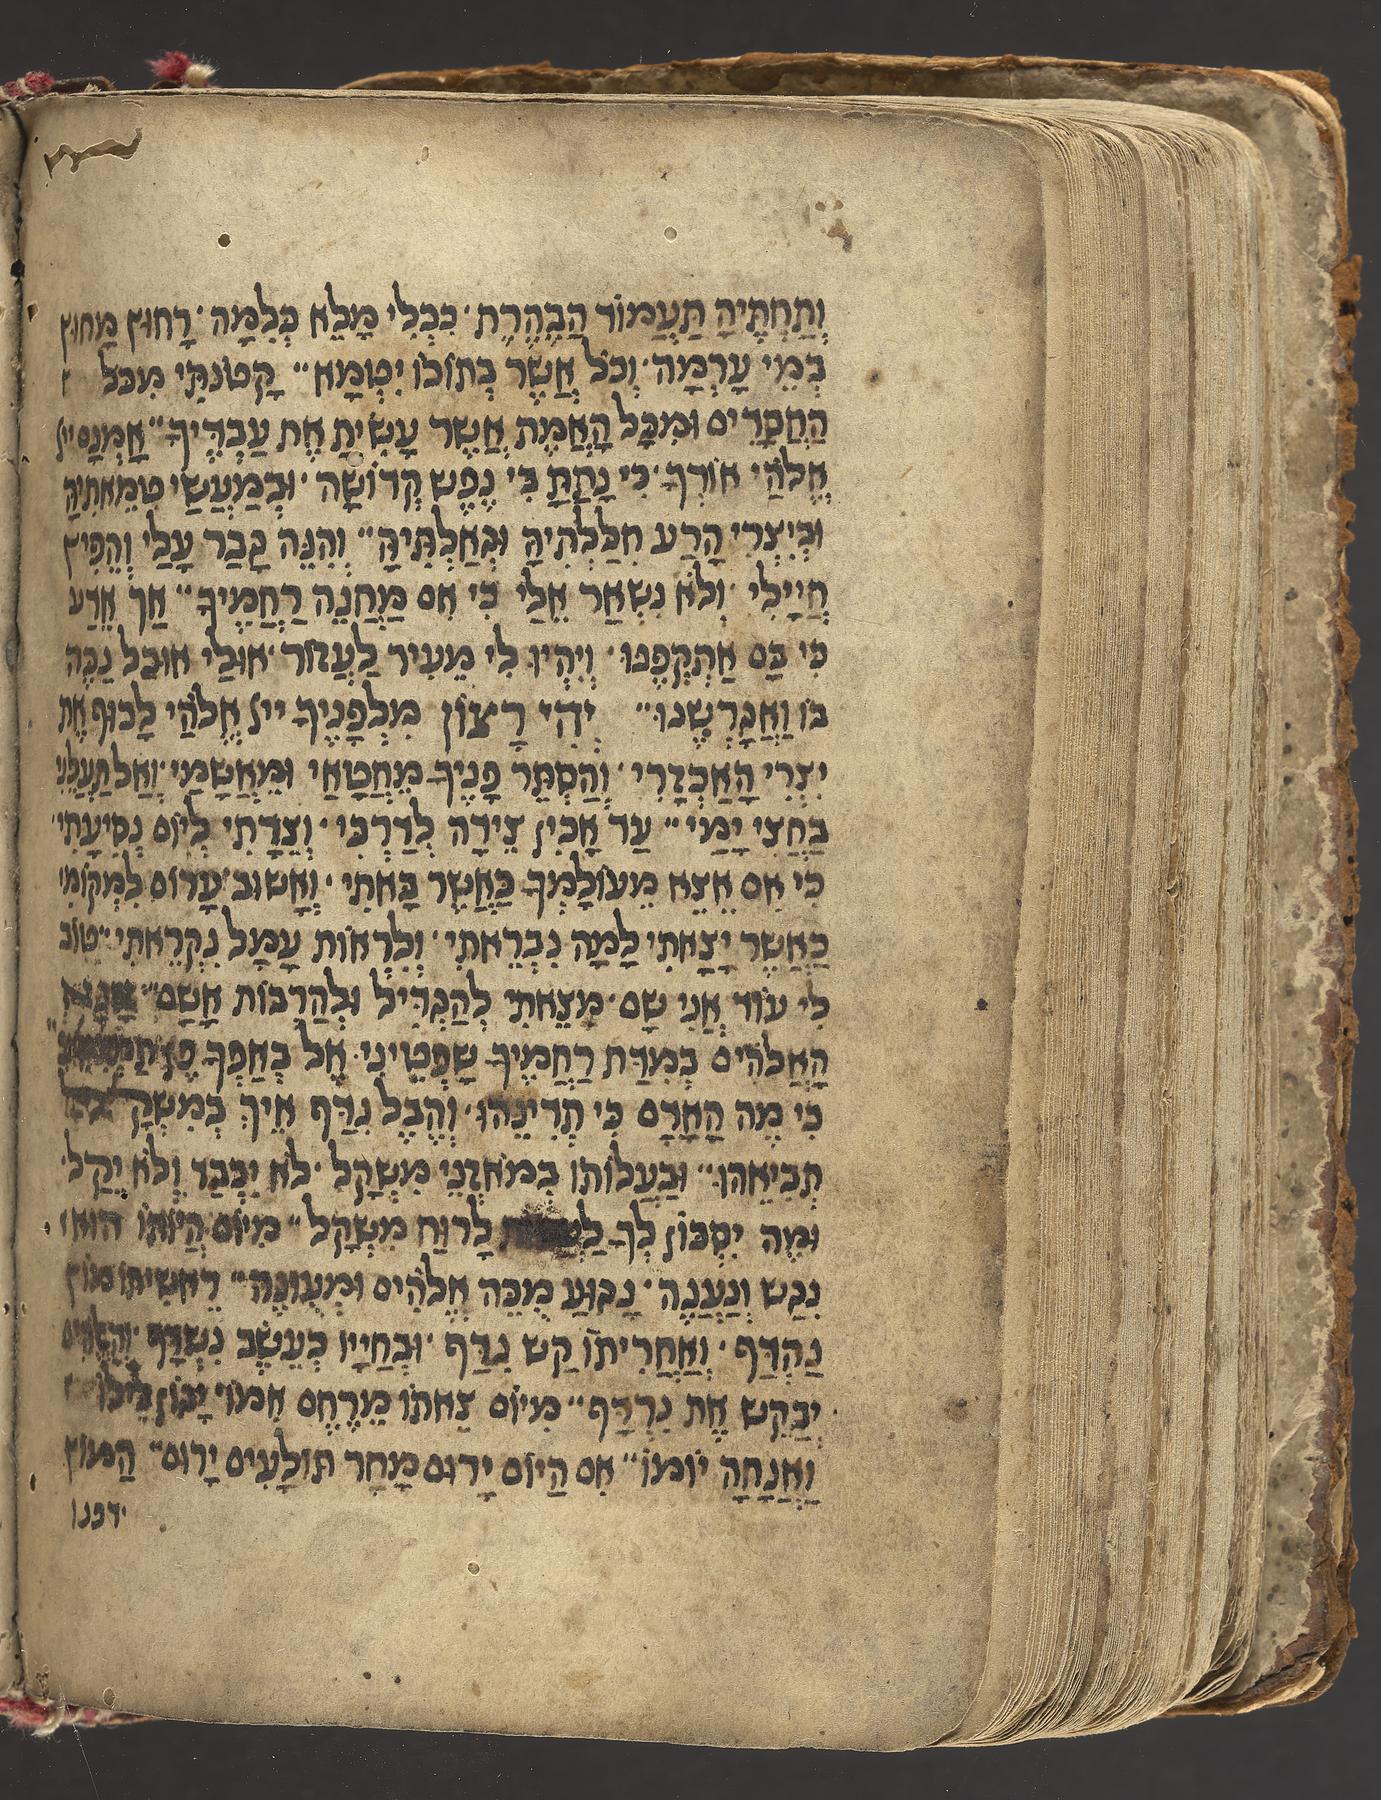 וְתַחְתֶּיהָ תַּעֲמוֹד הַבַּהֶרֶת· כִּכְלִי מָלֵא כְּלִמָּה· רָחוּץ מָחוּץ
בְּמֵי עָרְמָה· וְכֹל אֲשֶׁר בְּתוֹכוֹ יִטְמָא" קָטוֹנְתִּי מִכֹּל
הַחֲסָדִים וּמִכָּל הָאֱמֶת אֲשֶׁר עָשִׂיתָ אֶת עַבְדֶּיךָ" אָמְנָם ייי
אֱלֹהַי אוֹדְךָ· כִּי נָתַתָּ בִּי נֶפֶשׁ קְדוֹשָׁה· וּבְמַעֲשַׂי טִמֵּאתִיהָ
וּבְיִצְרִי הָרַע חִלַּלְתִּיהָ וּגְאַלְתִּיהָ" וְהִנֵּה גָבַר עָלַי וְהֵפִיץ
חֲיָילִי· וְלֹא נִשְׁאַר אֵלַי כִּי אִם מַחֲנֵה רַחֲמֶיךָ" אַךְ אֵדַע
כִּי בָם אֶתְקְפֶנּוּ· וְיִהְיוּ לִי מֵעִיר לַעֲזוֹר· אוּלַי אוּכַל נַכֶּה
בּוֹ וַאֲגָרְשֶׁנּוּ" יְהִי רָצוֹן מִלְּפָנֶיךָ ייי אֱלֹהַי לָכוּף אֶת
יִצְרִי הָאַכְזָרִי· וְהַסְתֵּר פָּנֶיךָ מֵחֲטָאַי וּמֵאֲשָׁמַי· וְאַל תַּעֲלֵנִי
בַּחֲצִי יָמַי" עַד אָכִין צֵידָה לְדַרְכִּי· וְצֵדָתִי לְיוֹם נְסִיעָתִי·
כִּי אִם אֵצֵא מֵעוֹלָמְךָ כַּאֲשֶׁר בָּאתִי· וְאָשׁוּב עָרוֹם לִמְקוֹמִי
כַּאֲשֶׁר יָצָאתִי לָמָּה נִבְרֵאתִי· וְלִרְאוֹת עָמָל נִקְרֵאתִי" טוֹב
לִי עוֹד אֲנִי שָׁם· מִצֵּאתִי לְהַגְדִּיל וּלְהַרְבּוֹת אָשָׁם"
הָאֱלֹהִים בְּמִדַּת רַחֲמֶיךָ שָׁפְטֵינִי· אַל בְּאַפְּךָ פֶּן
כִּי מֶה הָאָדָם כִּי תְדִינֵהוּ· וְהֶבֶל נִדָּף אֵיךְ בְּמִשְׁקָל
תְּבִיאֵהוּ" וּבַעֲלוֹתוֹ בְּמֹאזְנֵי מִשְׁקָל· לֹא יִכְבַּד וְלֹא יֵקַל·
וּמֶה יִסְכּוֹן לְךָ לָרוּחַ מִשְׁקָל" מִיּוֹם הֱיוֹתוֹ הוּא
נִגַּשׂ וְנַעֲנֶה· נָגוּעַ מֻכֵּה אֱלֹהִים וּמְעוּנֶּה" רֵאשִׁיתוֹ מוֹץ
נֶהְדָּף· וְאַחֲרִיתוֹ קַשׁ נִדָּף· וּבְחַיָּיו כְּעֵשֶׂב נִשְׁדָּף· וְהָאֱלֹהִים
יְבַקֵּשׁ אֶת נִרְדָּף" מִיּוֹם צֵאתוֹ מֵרֶחֶם אִמּוֹ· יָגוֹן לֵילוֹ
וַאֲנָחָה יוֹמוֹ" אִם הַיּוֹם יָרוּם מָחָר תּוֹלָעִים יָרוּם" הַמּוֹץ
ידפנו